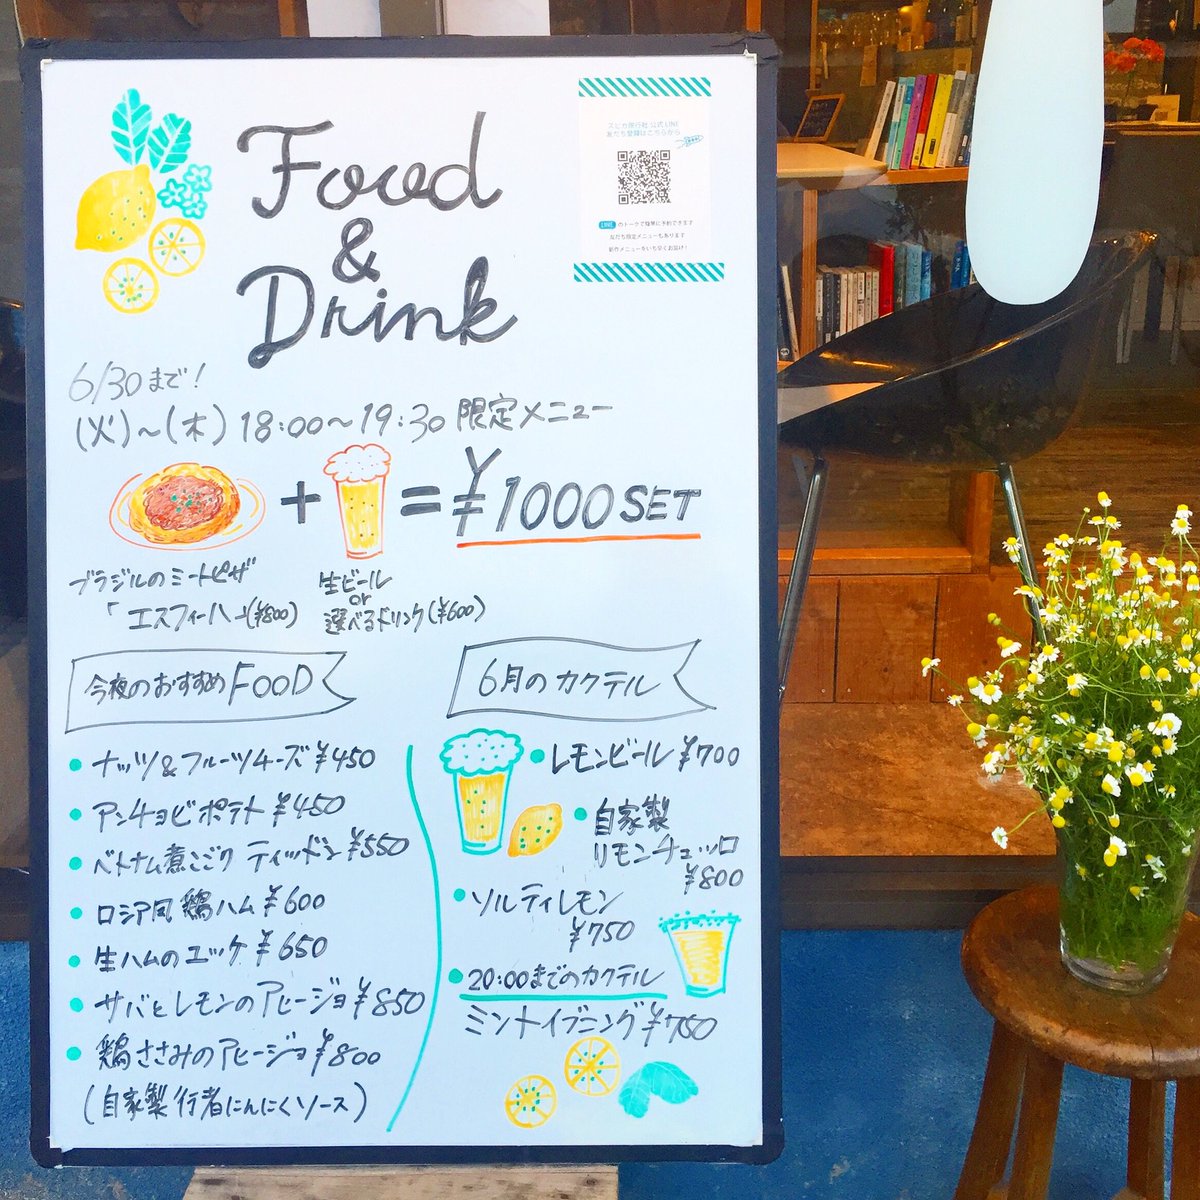 Food
&
Drink
スピカ旅行社 公式LINE
友だち登録はこちらから
LINE のトークで簡単に予約できます
友だち限定メニューもあります
新作メニューをいち早くお届け!
6/30まで!
(火)~(木) 18:00~19:30 限定メニュー
+ = ¥1000 SET
ブラジルのミートピザ
「エスフィーハ」(¥800)
生ビール
or
選べるドリンク(¥600)
今夜のおすすめFOOD
• ナッツ&フルーツチーズ ¥450
• アンチョビポテト ¥450
• ベトナム煮こごり ティットドン ¥550
• ロシア風 鶏ハム ¥600
• 生ハムのユッケ ¥650
• サバとレモンのアヒージョ ¥850
• 鶏ささみのアヒージョ ¥800
(自家製 行者にんにくソース)
6月のカクテル
• レモンビール ¥700
• 自家製
リモンチェッロ
¥800
• ソルティレモン
¥750
• 20:00までのカクテル
ミントイブニング ¥750